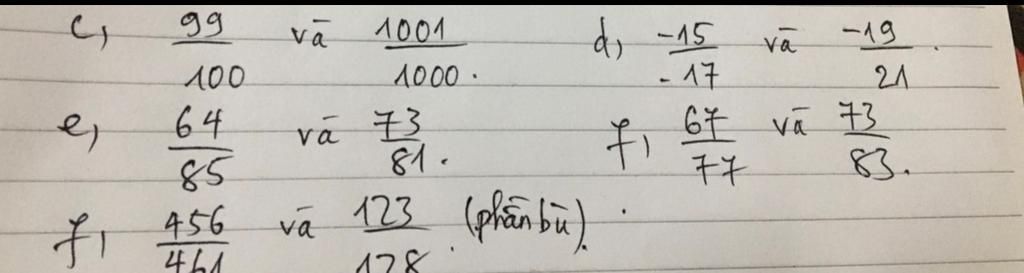 c, 99/100 và 1001/1000. d, -15/-17 và -19/21.
e, 64/85 và 73/81. f, 67/77 và 73/83.
f, 456/461 và 123/128 (phần bù).